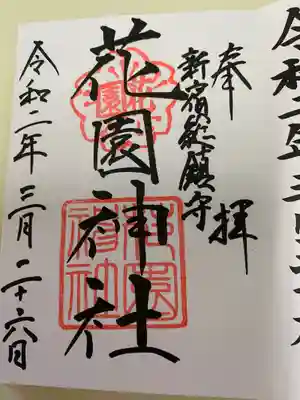 奉拝
新宿総鎮守
花園神社
令和二年三月二十六日
花園
花園神社